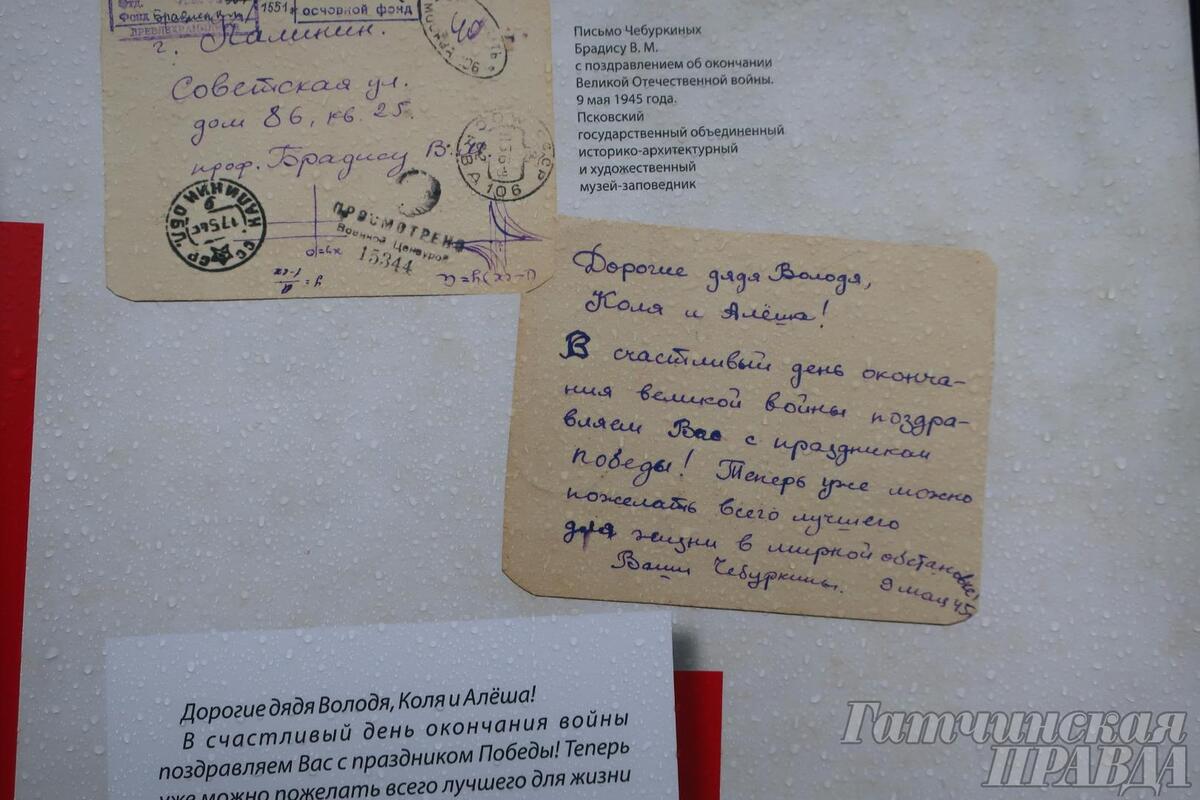 Отд.
Фонд Брадиса В.М.
ДРЕВЛЕХРАНИЛИЩЕ
1551
ОСНОВНОЙ ФОНД
г. Калинин.
Советская ул.
дом 86, кв. 25.
проф. Брадису В. М.
МОСКВА 106
40
СССР
МОСКВА 106
КАЛИНИН ОБЛ.
СССР
17 5 45
ПРОСМОТРЕНО
Военной Цензурой
15344
xy=a
y = a/1-cx
(1-cx)y=a
Письмо Чебуркиных
Брадису В. М.
с поздравлением об окончании
Великой Отечественной войны.
9 мая 1945 года.
Псковский
государственный объединенный
историко-архитектурный
и художественный
музей-заповедник
Дорогие дядя Володя,
Коля и Алёша!
В счастливый день оконча-
ния великой войны поздра-
вляем Вас с праздником
победы! Теперь уже можно
пожелать всего лучшего
для жизни в мирной обстановке!
Ваши Чебуркины. 9 мая 45
Дорогие дядя Володя, Коля и Алёша!
В счастливый день окончания войны
поздравляем Вас с праздником Победы! Теперь
уже можно пожелать всего лучшего для жизни
Гатчинская
ПРАВДА